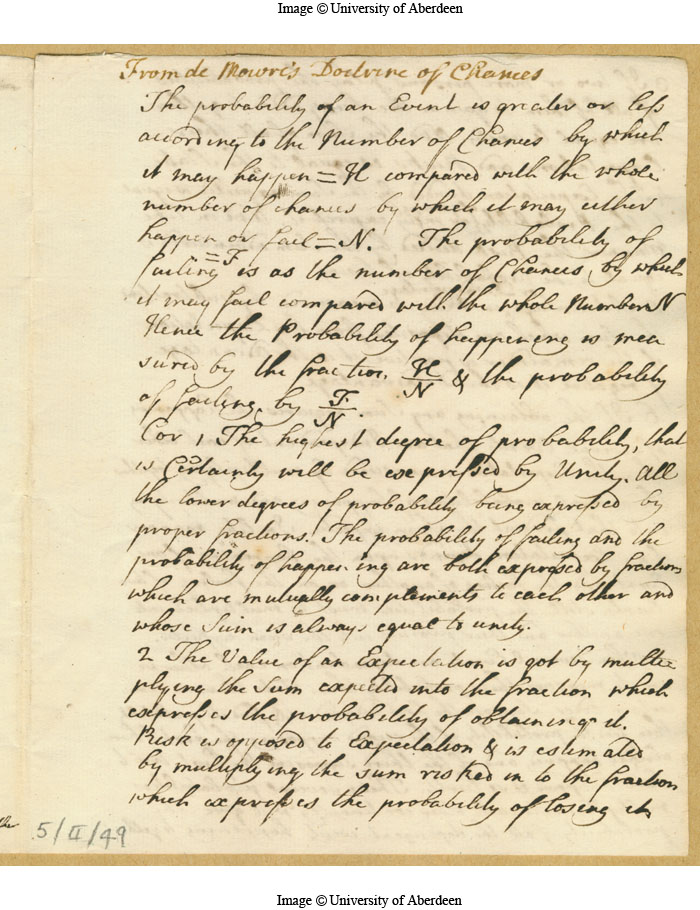 Image © University of Aberdeen
From de Moivre's Doctrine of Chances
The probability of an Event is greater or less
according to the Number of Chances by which
it may happen = H compared with the whole
number of chances by which it may either
happen or fail = N. The probability of
= F
failing is as the number of Chances by which
it may fail compared with the whole Number N
Hence the Probability of happening is mea
sured by the fraction H/N & the probability
of failing by F/N.
Cor 1 The highest degree of probability, that
is Certainty will be expressed by Unity. All
the lower degrees of probability being expressed by
proper fractions. The probability of failing and the
probability of happening are both expressed by fractions
which are mutually complements to each other and
whose Sum is always equal to unity.
2 The Value of an Expectation is got by multi
plying the Sum expected into the fraction which
expresses the probability of obtaining it.
Risk is opposed to Expectation & is estimated
by multiplying the sum risked in to the fraction
which expresses the probability of losing it
5/II/49
Image © University of Aberdeen